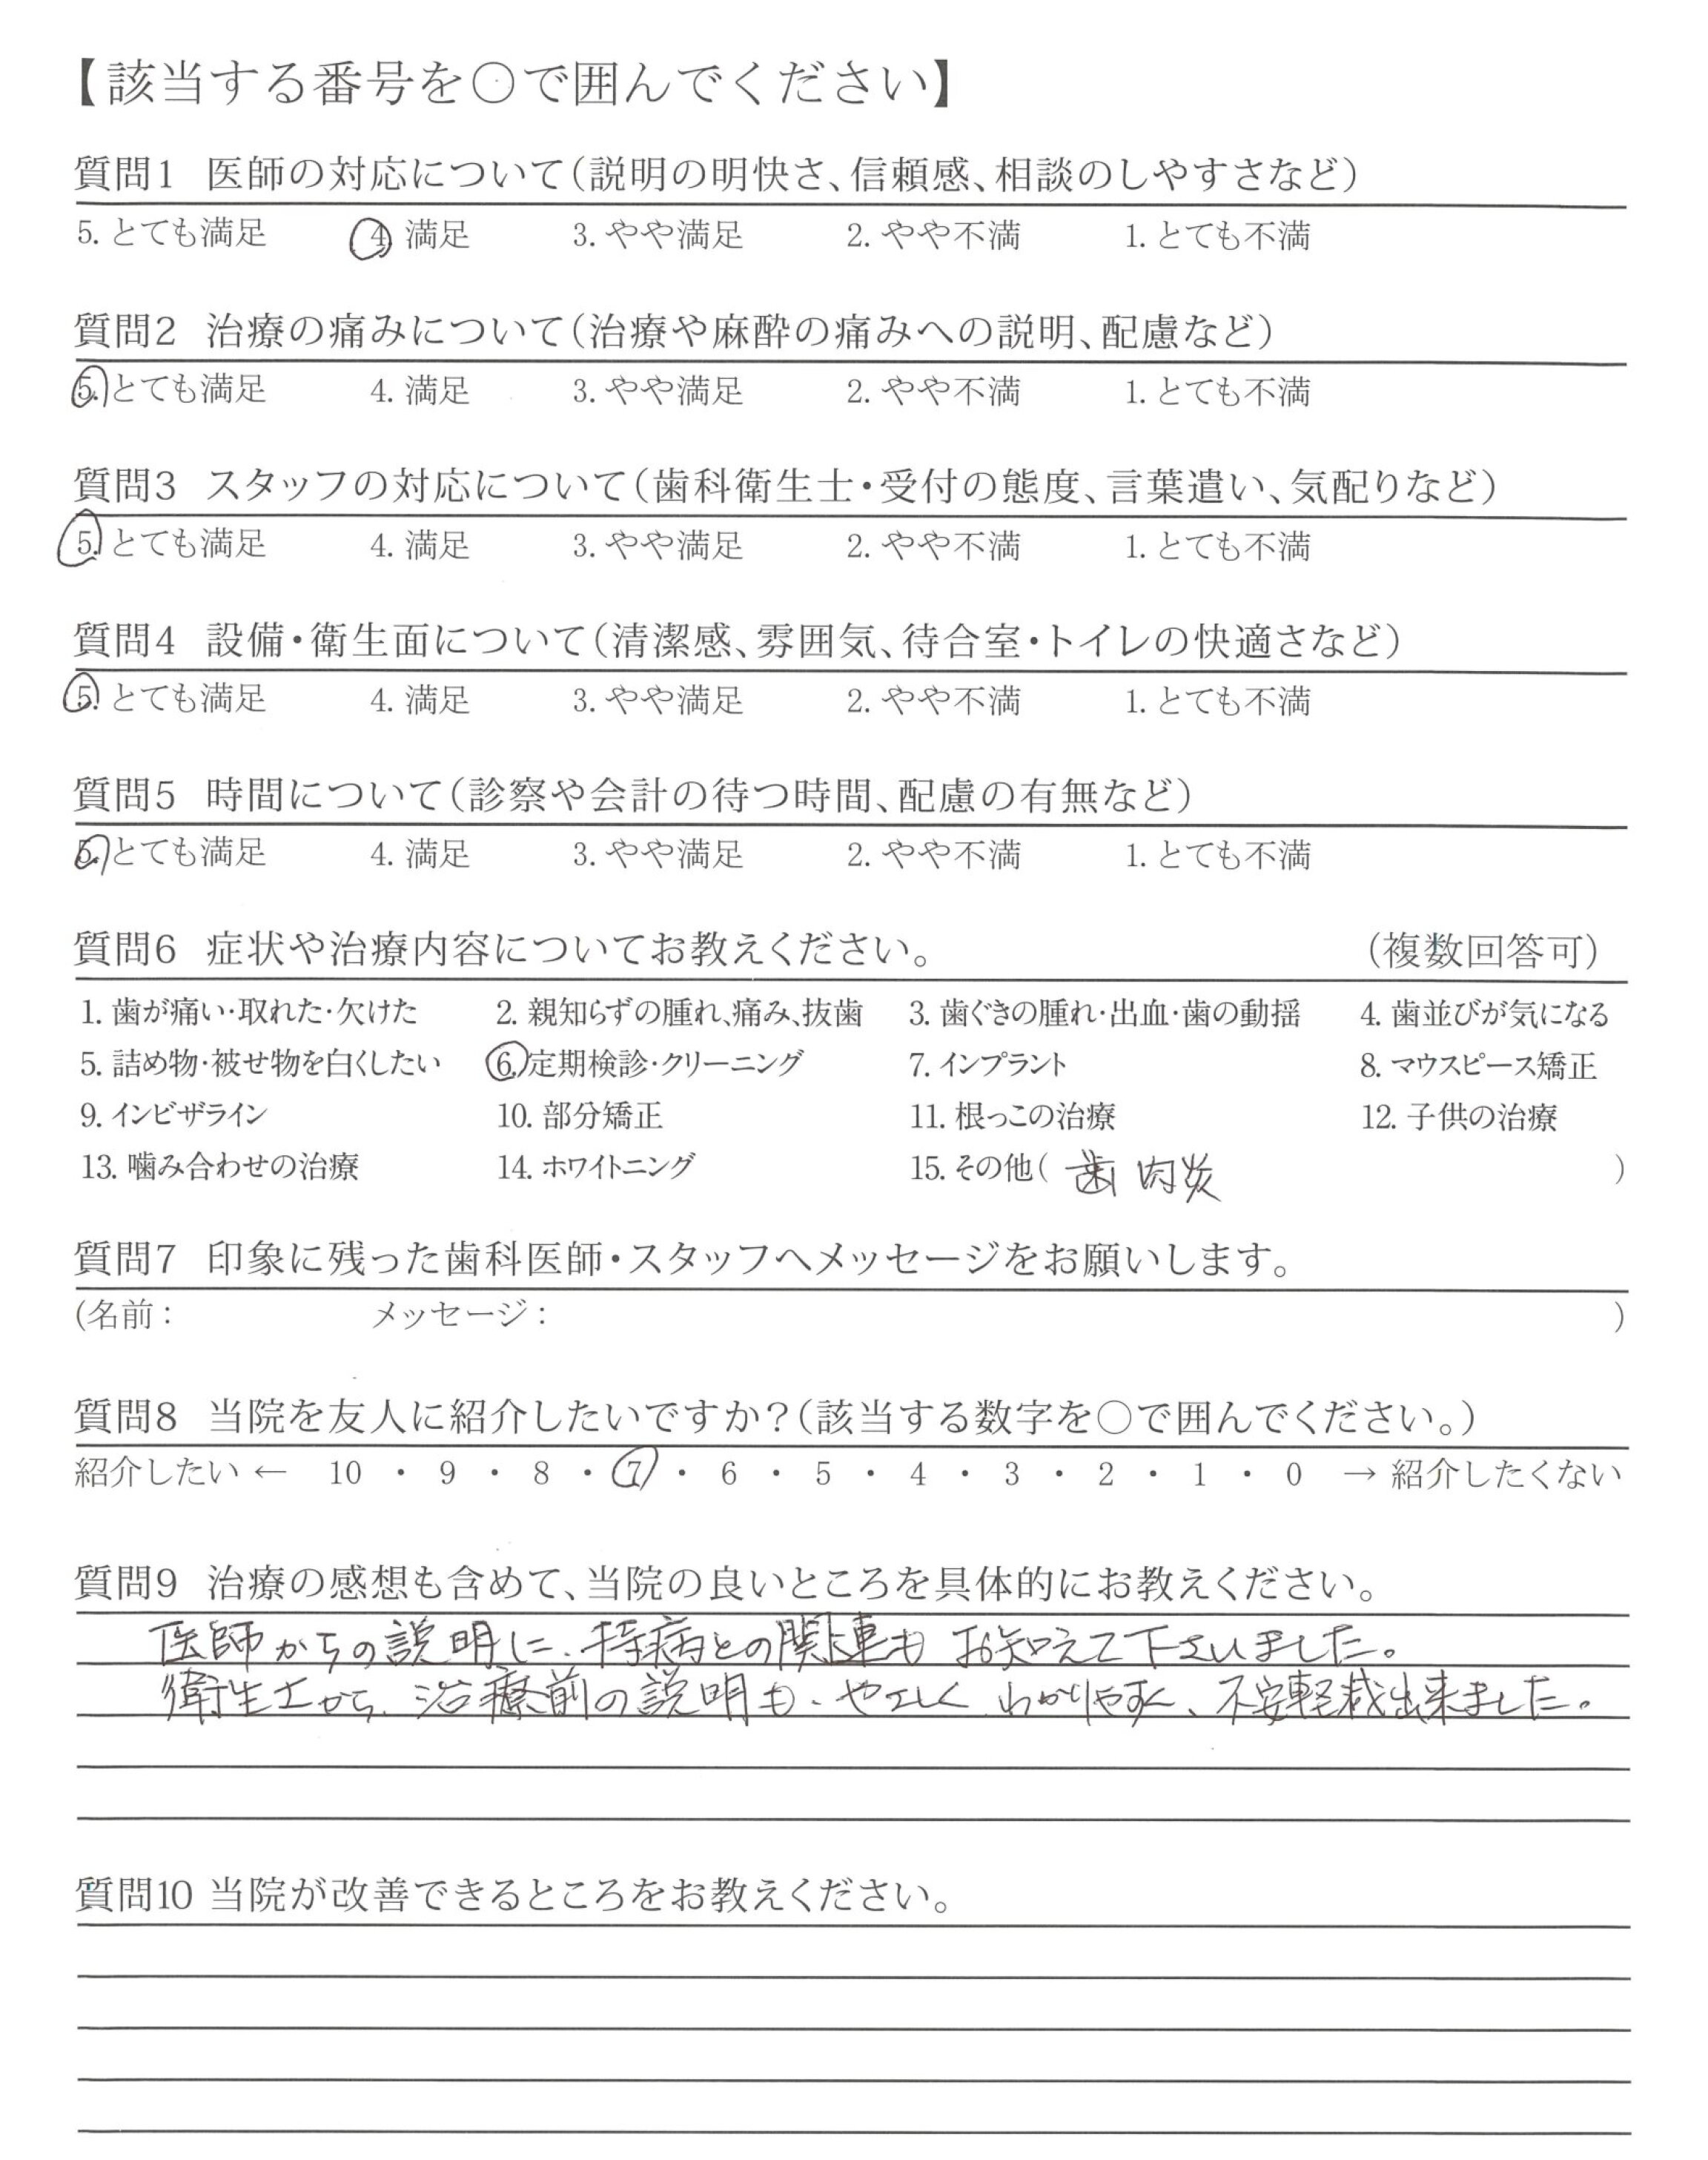 【該当する番号を〇で囲んでください】
質問1 医師の対応について(説明の明快さ、信頼感、相談のしやすさなど)
5. とても満足 4. 満足 3. やや満足 2. やや不満 1. とても不満
質問2 治療の痛みについて(治療や麻酔の痛みへの説明、配慮など)
5. とても満足 4. 満足 3. やや満足 2. やや不満 1. とても不満
質問3 スタッフの対応について(歯科衛生士・受付の態度、言葉遣い、気配りなど)
5. とても満足 4. 満足 3. やや満足 2. やや不満 1. とても不満
質問4 設備・衛生面について(清潔感、雰囲気、待合室・トイレの快適さなど)
5. とても満足 4. 満足 3. やや満足 2. やや不満 1. とても不満
質問5 時間について(診察や会計の待つ時間、配慮の有無など)
5. とても満足 4. 満足 3. やや満足 2. やや不満 1. とても不満
質問6 症状や治療内容についてお教えください。 (複数回答可)
1. 歯が痛い・取れた・欠けた 2. 親知らずの腫れ、痛み、抜歯 3. 歯ぐきの腫れ・出血・歯の動揺 4. 歯並びが気になる
5. 詰め物・被せ物を白くしたい 6. 定期検診・クリーニング 7. インプラント 8. マウスピース矯正
9. インビザライン 10. 部分矯正 11. 根っこの治療 12. 子供の治療
13. 噛み合わせの治療 14. ホワイトニング 15. その他( 歯肉炎 )
質問7 印象に残った歯科医師・スタッフへメッセージをお願いします。
(名前: メッセージ: )
質問8 当院を友人に紹介したいですか?(該当する数字を〇で囲んでください。)
紹介したい ← 10 ・ 9 ・ 8 ・ 7 ・ 6 ・ 5 ・ 4 ・ 3 ・ 2 ・ 1 ・ 0 → 紹介したくない
質問9 治療の感想も含めて、当院の良いところを具体的にお教えください。
医師からの説明に、持病との関連も お知えて下さいました。
衛生士から、治療前の説明も、やさしく わかりやすく、不安軽減出来ました。
質問10 当院が改善できるところをお教えください。